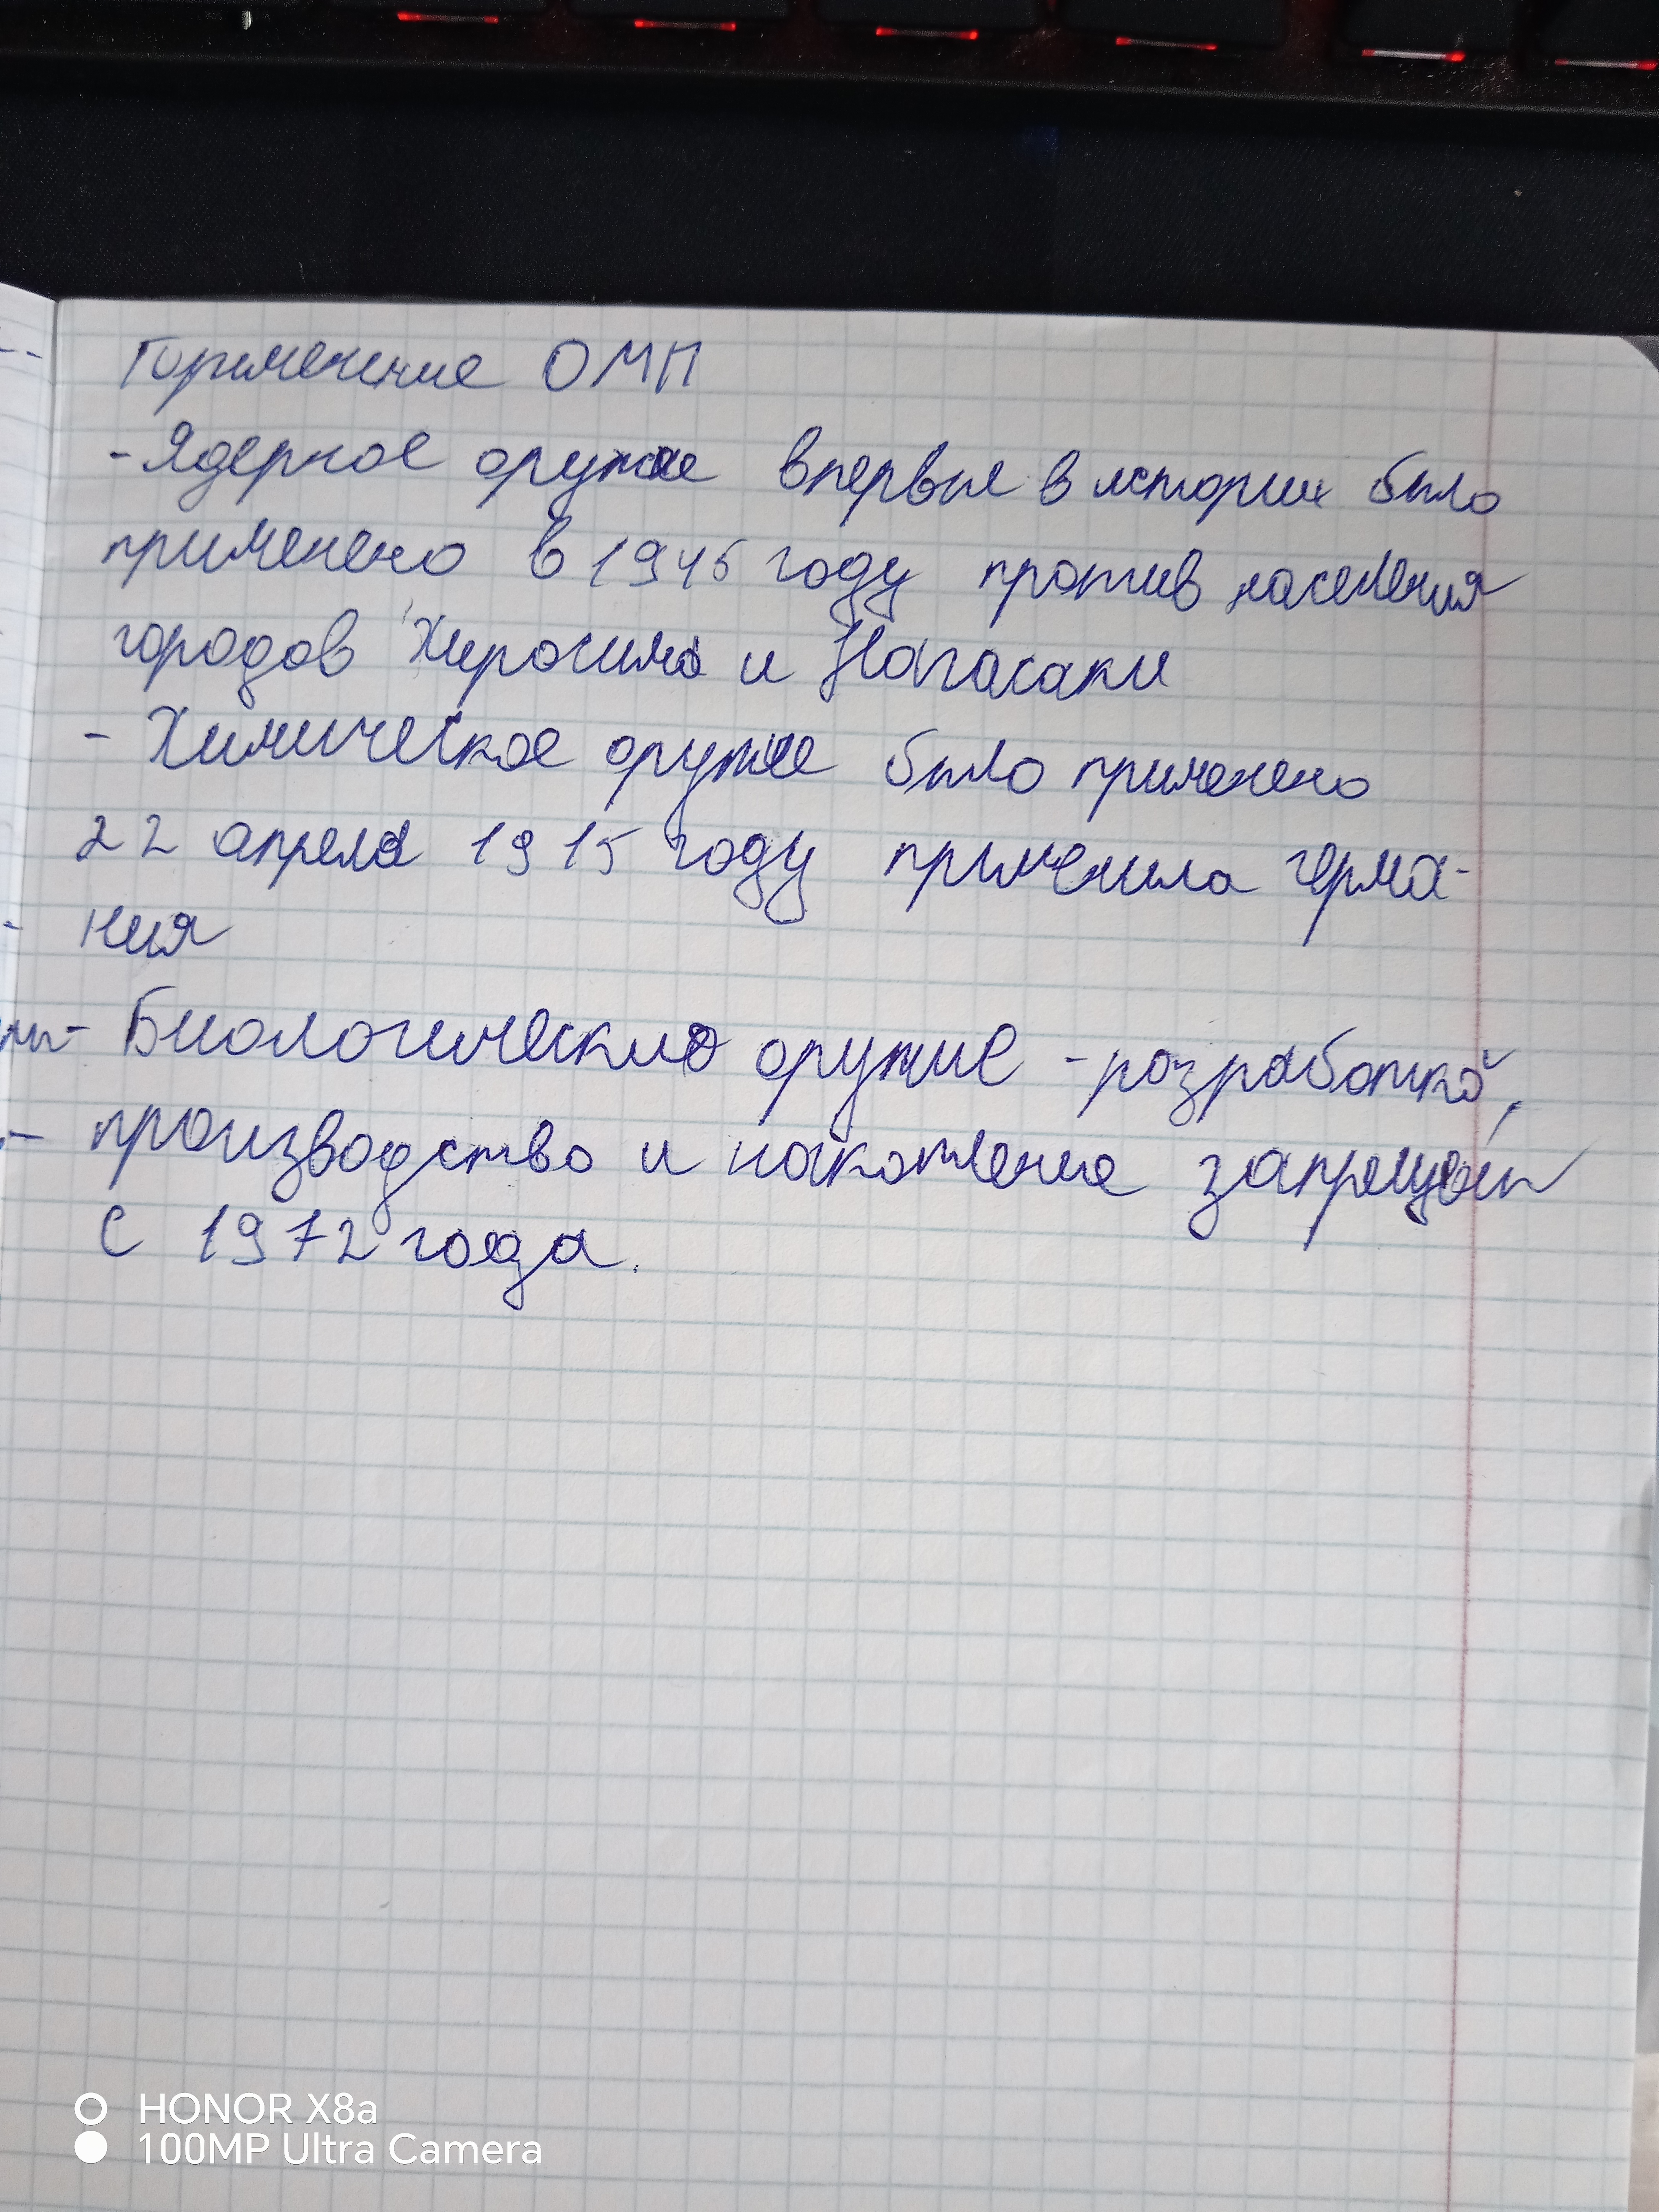 Применение ОМП
- Ядерное оружие впервые в истории было
применено в 1945 году против населения
городов Хиросима и Нагасаки
- Химическое оружие было применено
22 апреля 1915 году применила герма-
ния
- Биологические оружие - разработка,
производство и накопление запрещён
с 1972 года.
HONOR X8a
100MP Ultra Camera